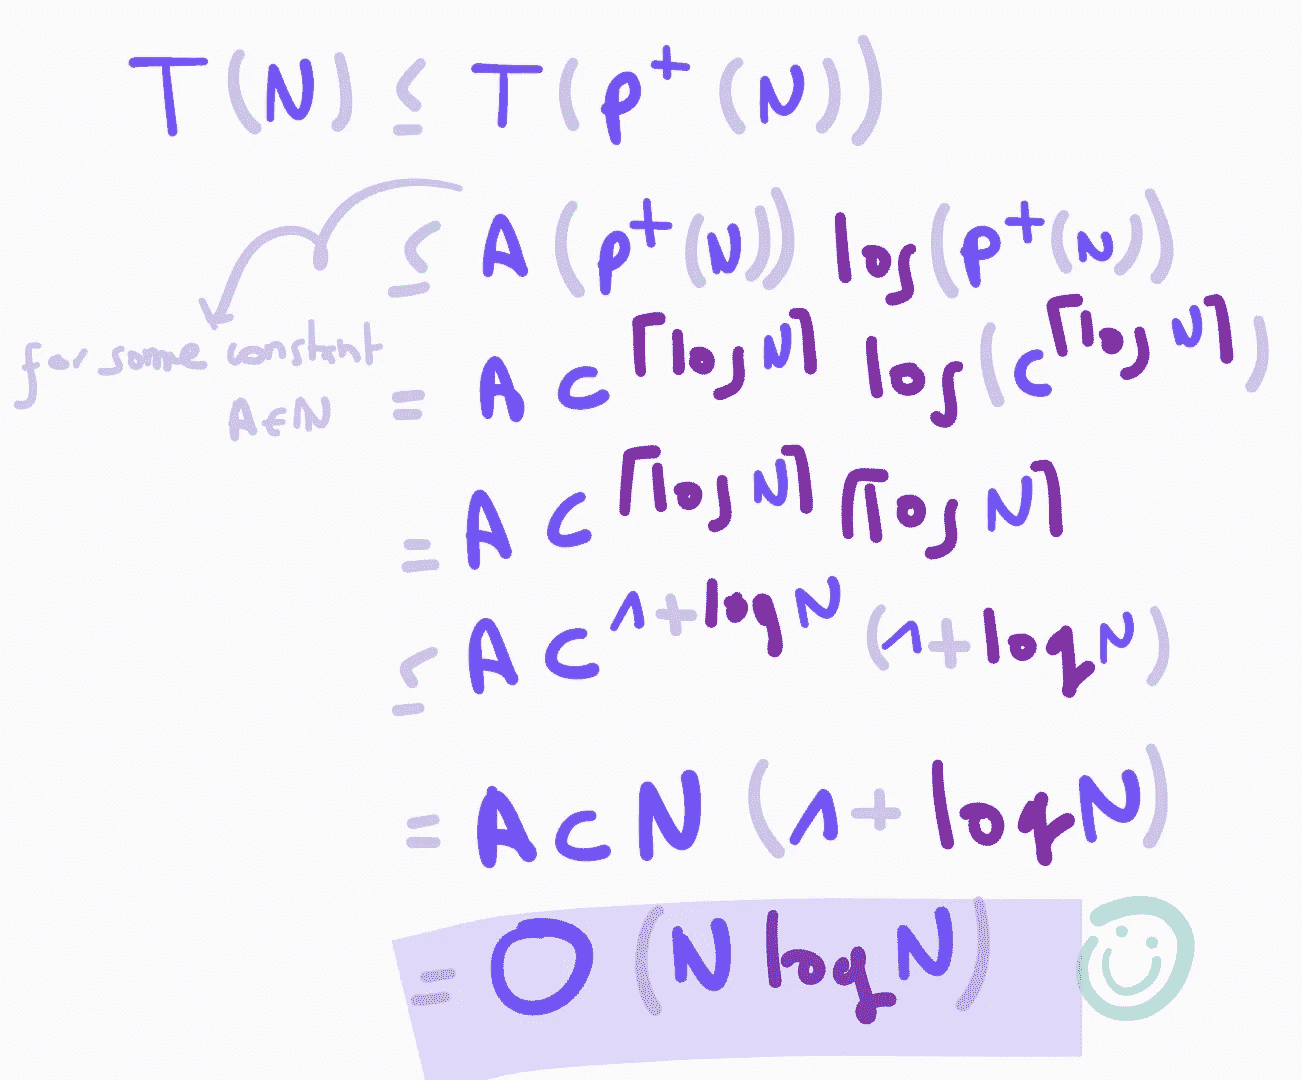 T(N) ≤ T(p⁺(N))
≤ A(p⁺(N)) log(p⁺(N))
for some constant
A∈N
= A c^⌈log N⌉ log(c^⌈log N⌉)
= A c^⌈log N⌉ ⌈log N⌉
≤ A c^(1+log N) (1+log N)
= A c N (1+log N)
= O(N log N)